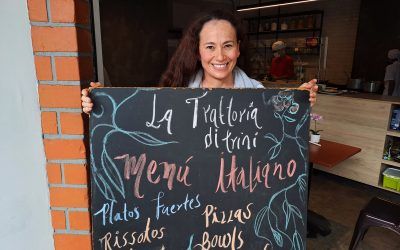 La Trattoría
di trini
Menú Italiano
Platos Fuertes
Rissotos
Pizzas
Bowls